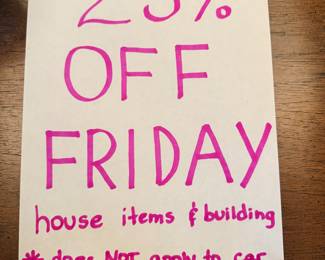 25%
OFF
FRIDAY
house items & building
* does NOT apply to car